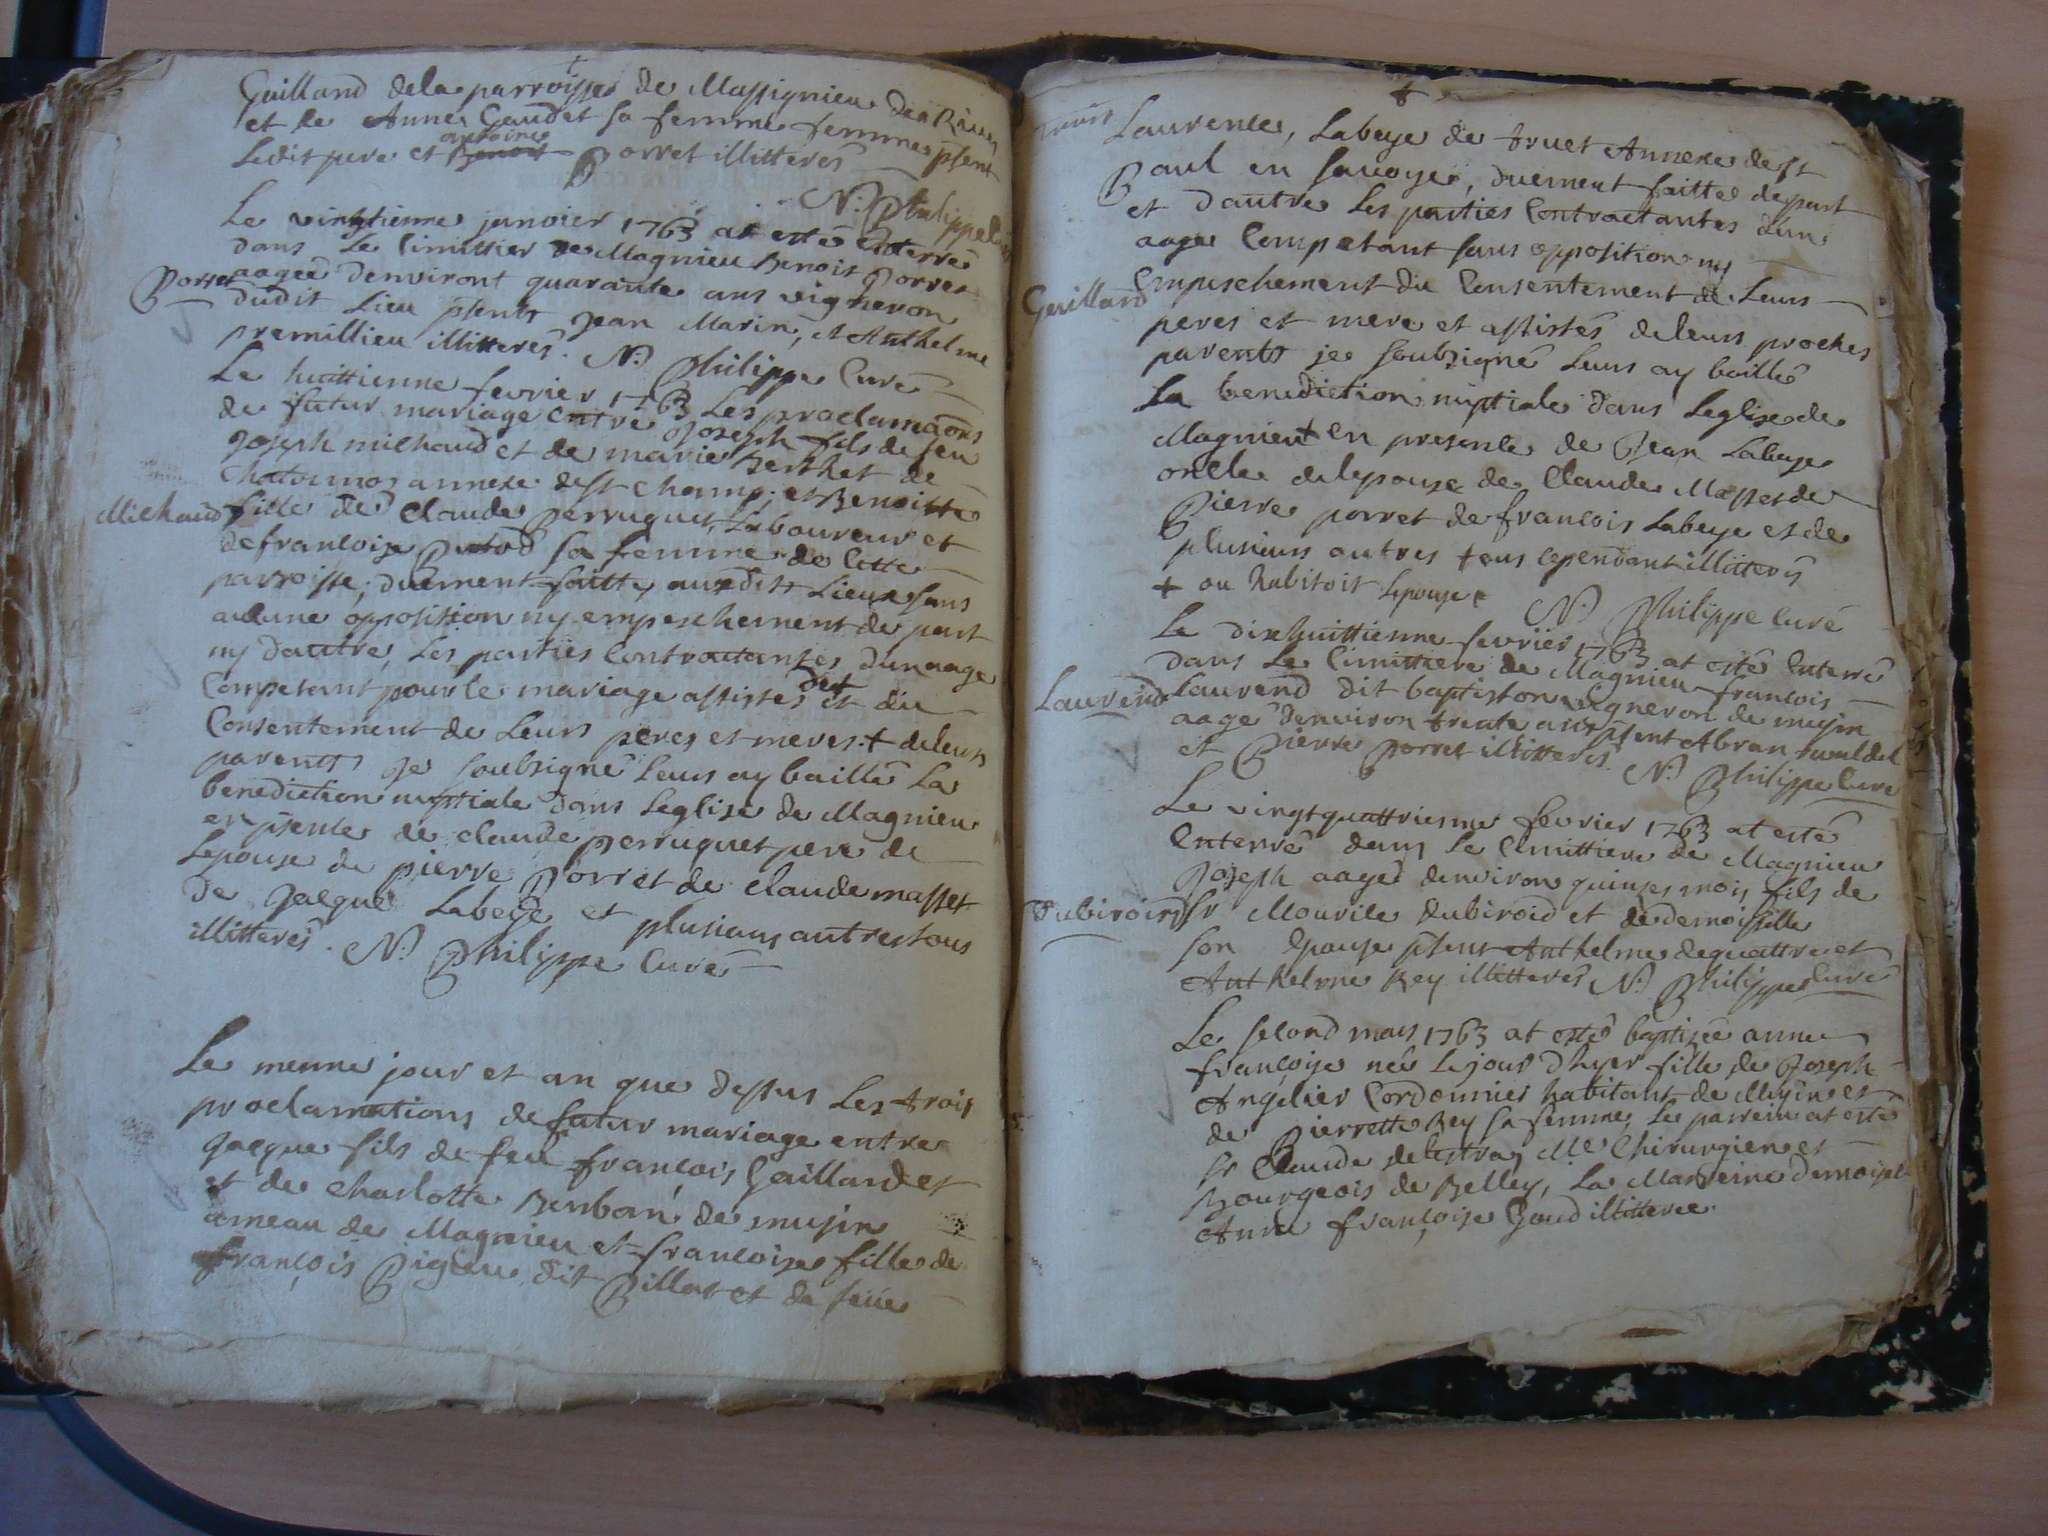 Guilland dela parroisse de Massignieu des Rives
et de Anne Gaudet sa femme femmes pŝent
antoine
Ledit pere et Benoit Porret illitterés
N: Philippe Curé
Le vingtienne janvier 1763 at esté Enterré
dans Le Cimittier de Magnieu Benoit Porret
Porret
aagée denviront quarante ans vigneron
dudit Lieu pŝents Jean Marin, et Anthelme
premillieu illitterés. N: Philippe Curé
Le huittienne fevrier 1763 Les proclamaôns
de futur mariage entre Joseph fils de feu
Joseph milhaud et de marie Berthet de
annexe de st Champ. et Benoitte
Milhaud
fille de Claude Perruquet, Laboureur et
de francoise sa femme de Cette
parroisse, duement faitte, auxdits Lieux sans
aucune opposition ny empeschement de part
ny dautre, Les parties Contractantes dun aage
Competant pour le mariage assistes det et du
Consentement de Leurs peres et meres + de leurs
parents Je soubsigné Leurs ay baillé La
benediction nuptiale dans Leglise de Magnieu
en pŝente de claude perruquet pere de
Lepouse de pierre Porret de claude masset
de Jacque Labeye et plusiurs autres tous
illitterés. N: Philippe Curé
Le menne jour et an que dessus Les trois
proclamations de futur mariage entre
Jacque fils de feu françois Gaillard et
et de Charlotte de mujin
ameau de Magnieu et francoise fille de
françois dit Pillat et de feüe
Laurence, Labeye de truet Annexe de st
Paul en Savoye, duement faitte de part
et dautre Les parties Contractantes dun
aage Competant sans opposition ny
Guillard
Empeschement du Consentement de Leurs
peres et mere et assistés de leurs proches
parents je soubsigné Leurs ay baillé
La benediction nuptiale dans Leglise de
Magnieu + en presente de Jean Labeye
oncle de lepouse de Claude Masset de
Pierre porret de francois Labeye et de
plusieurs autres tous cependant illitterés
+ ou habitoit Lepouse
N: Philippe Curé
Le dixhuittienne fevrier 1763 at esté Enterré
dans Le Cimittiere de Magnieu francois
Laurend
Laurend dit baptiston vigneron de mujin
aagé denviron trente ans pŝent Abran
et Pierre Porret illitterés N: Philippe Curé
Le vingtquattrienne fevrier 1763 at esté
Enterré dans Le Cimittiere de Magnieu
Joseph aagé denviron quinze mois fils de
Dubiroid
sr Mourile dubiroid et de demoiselle
son Epouse pŝent Anthelme dequattre et
Anthelme Rey illitterés N: Philippe Curé
Le second mars 1763 at esté baptizée anne
françoise née Le jour dhyer fille de Joseph
Angelier Cordonnier habitant de Mujin et
de Pierrette Rey sa femme, Le parrein at esté
sr Claude delestraz Me Chirurgien et
Bourgeois de Belley, La Marreine demoisel
Anne françoise Gaud illitteree.